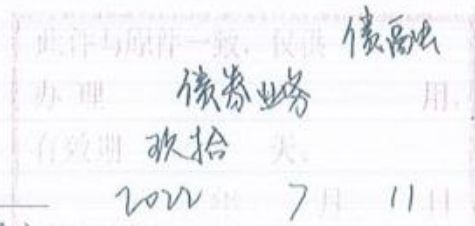 此件与原件一致，仅供 债融
办理 债券业务 用，
有效期 玖拾 天。
2022 年 7 月 11 日